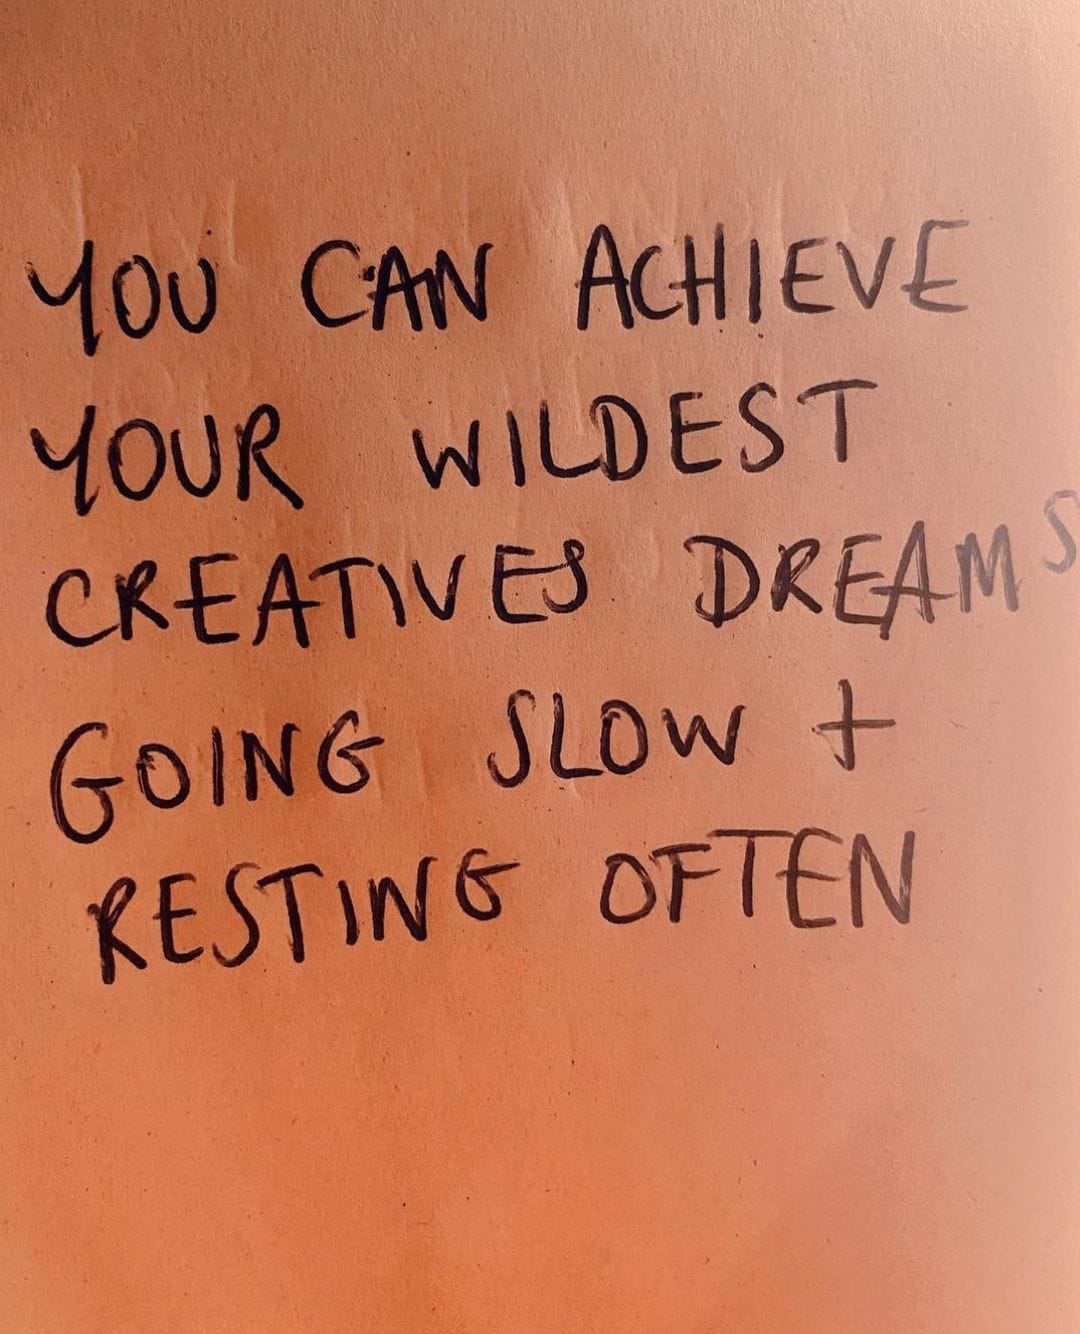 YOU CAN ACHIEVE
YOUR WILDEST
CREATIVES DREAMS
GOING SLOW +
RESTING OFTEN